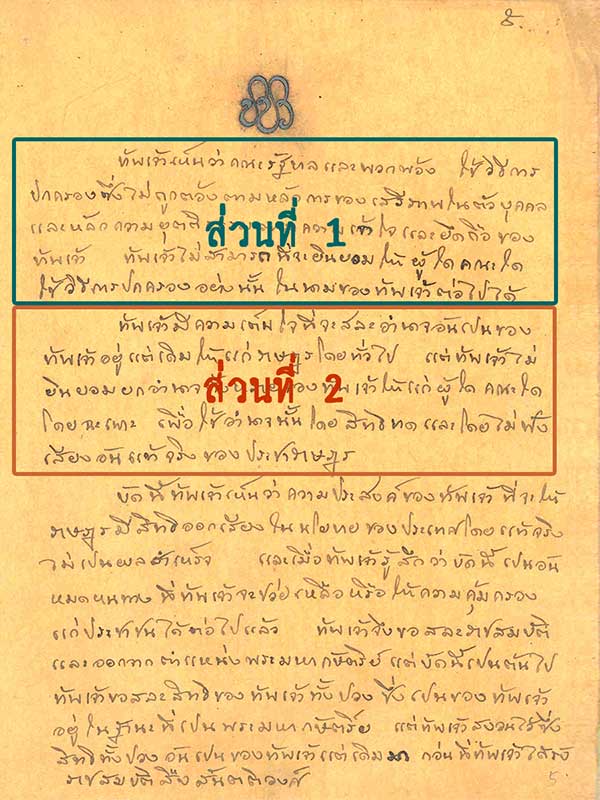 ๕.
ข้าพเจ้าเห็นว่าคณะรัฐบาลและพวกพ้อง ใช้วิธีการ
ปกครองซึ่งไม่ถูกต้องตามหลักการของเสรีภาพในตัวบุคคล
และหลักความยุตติ ความเข้าใจและยึดถือของ
ส่วนที่ 1
ข้าพเจ้า ข้าพเจ้าไม่สามารถที่จะยินยอมให้ผู้ใด คณะใด
ใช้วิธีการปกครองอย่างนั้น ในนามของข้าพเจ้าต่อไปได้
ข้าพเจ้ามีความเต็มใจที่จะสละอำนาจอันเป็นของ
ข้าพเจ้าอยู่แต่เดิมให้แก่ราษฎรโดยทั่วไป แต่ข้าพเจ้าไม่
ยินยอมยกอำนาจ ข้าพเจ้าให้แก่ผู้ใด คณะใด
ส่วนที่ 2
โดยฉะเพาะ เพื่อใช้อำนาจนั้นโดยสิทธิขาด และโดยไม่ฟัง
เสียงอันแท้จริงของประชาราษฎร
บัดนี้ข้าพเจ้าเห็นว่าความประสงค์ของข้าพเจ้าที่จะให้
ราษฎรมีสิทธิออกเสียงในนโยบายของประเทศโดยแท้จริง
ไม่เป็นผลสำเร็จ และเมื่อข้าพเจ้ารู้สึกว่าบัดนี้เป็นอัน
หมดหนทางที่ข้าพเจ้าจะช่วยเหลือหรือให้ความคุ้มครอง
แก่ประชาชนได้ต่อไปแล้ว ข้าพเจ้าจึงขอสละราชสมบัติ
และออกจากตำแหน่งพระมหากษัตริย์ แต่บัดนี้เป็นต้นไป
ข้าพเจ้าขอสละสิทธิของข้าพเจ้าทั้งปวง ซึ่งเป็นของข้าพเจ้า
อยู่ในฐานะที่เป็นพระมหากษัตริย์ แต่ข้าพเจ้าสงวนไว้ซึ่ง
สิทธิทั้งปวงอันเป็นของข้าพเจ้าแต่เดิมมา ก่อนที่ข้าพเจ้าได้รับ
ราชสมบัติสืบสันตติวงศ์
5